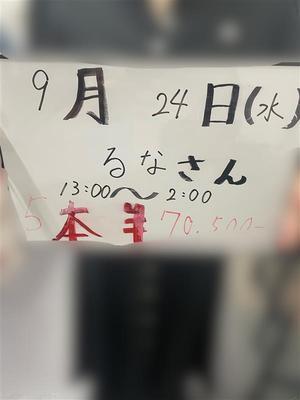 9月 24日(水)
るなさん
13:00〜2:00
5本 70.500-